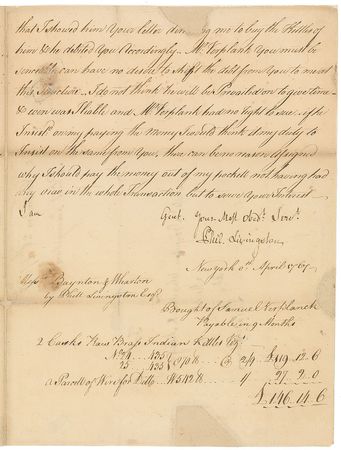 that I showed him Your letter desiring me to buy the Kettles of
him & he debited You Accordingly. Mr. Verplank You must be
sensible can have no desire to shift the debt from You to me at
this Juncture. I do not think he will be Prevailed on to give time
& even was I liable and Mr. Verplank had no right to sue, if he
Insists on my paying the Money I would think it my duty to
Insist on the same from You, there can be no reason assigned
why I should pay the money out of my pocket not having had
Any view in the whole Transaction but to serve Your Interest
I am
Gent. Your Most Obedt. Servt.
Phil. Livingston
New York 6th April 1767
Messrs. Baynton & Wharton
by Phill Livingston Esqr.
Bought of Samuel Verplanck
Payable in 9 Months
2 Casks Raw Brass Indian Kettles
No. 24 435
25 435 @ 2/9 £119.12.6
a Parcell of Wire for Ditto 27.2.0
£146.14.6